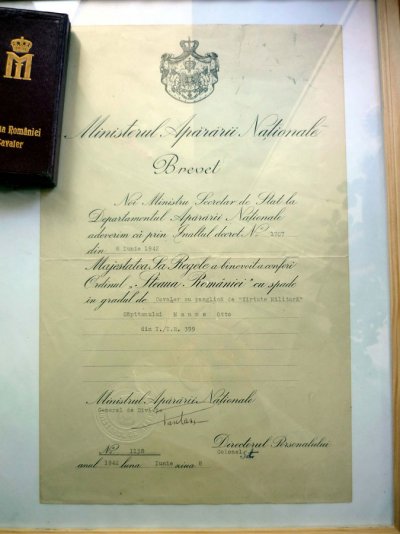 na României
Cavaler
Ministerul Apărării Naționale
Brevet
Noi Ministru Secretar de Stat la
Departamentul Apărării Naționale
adeverim că prin Înaltul decret No. 1707
din 6 Iunie 1942
Majestatea Sa Regele a binevoit a conferi
Ordinul „Steaua României" cu spade
în gradul de Cavaler cu panglică de "Virtute Militară"
Căpitanului Maume Otto
din I./I.R. 399
Ministrul Apărării Naționale
General de Divizie
No. 1138
Directorul Personalului
Colonel
anul 1942 luna Iunie ziua 8